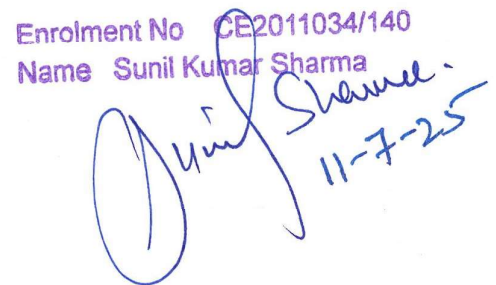 Enrolment No CE2011034/140
Name Sunil Kumar Sharma
Sunil Sharma.
11-7-25